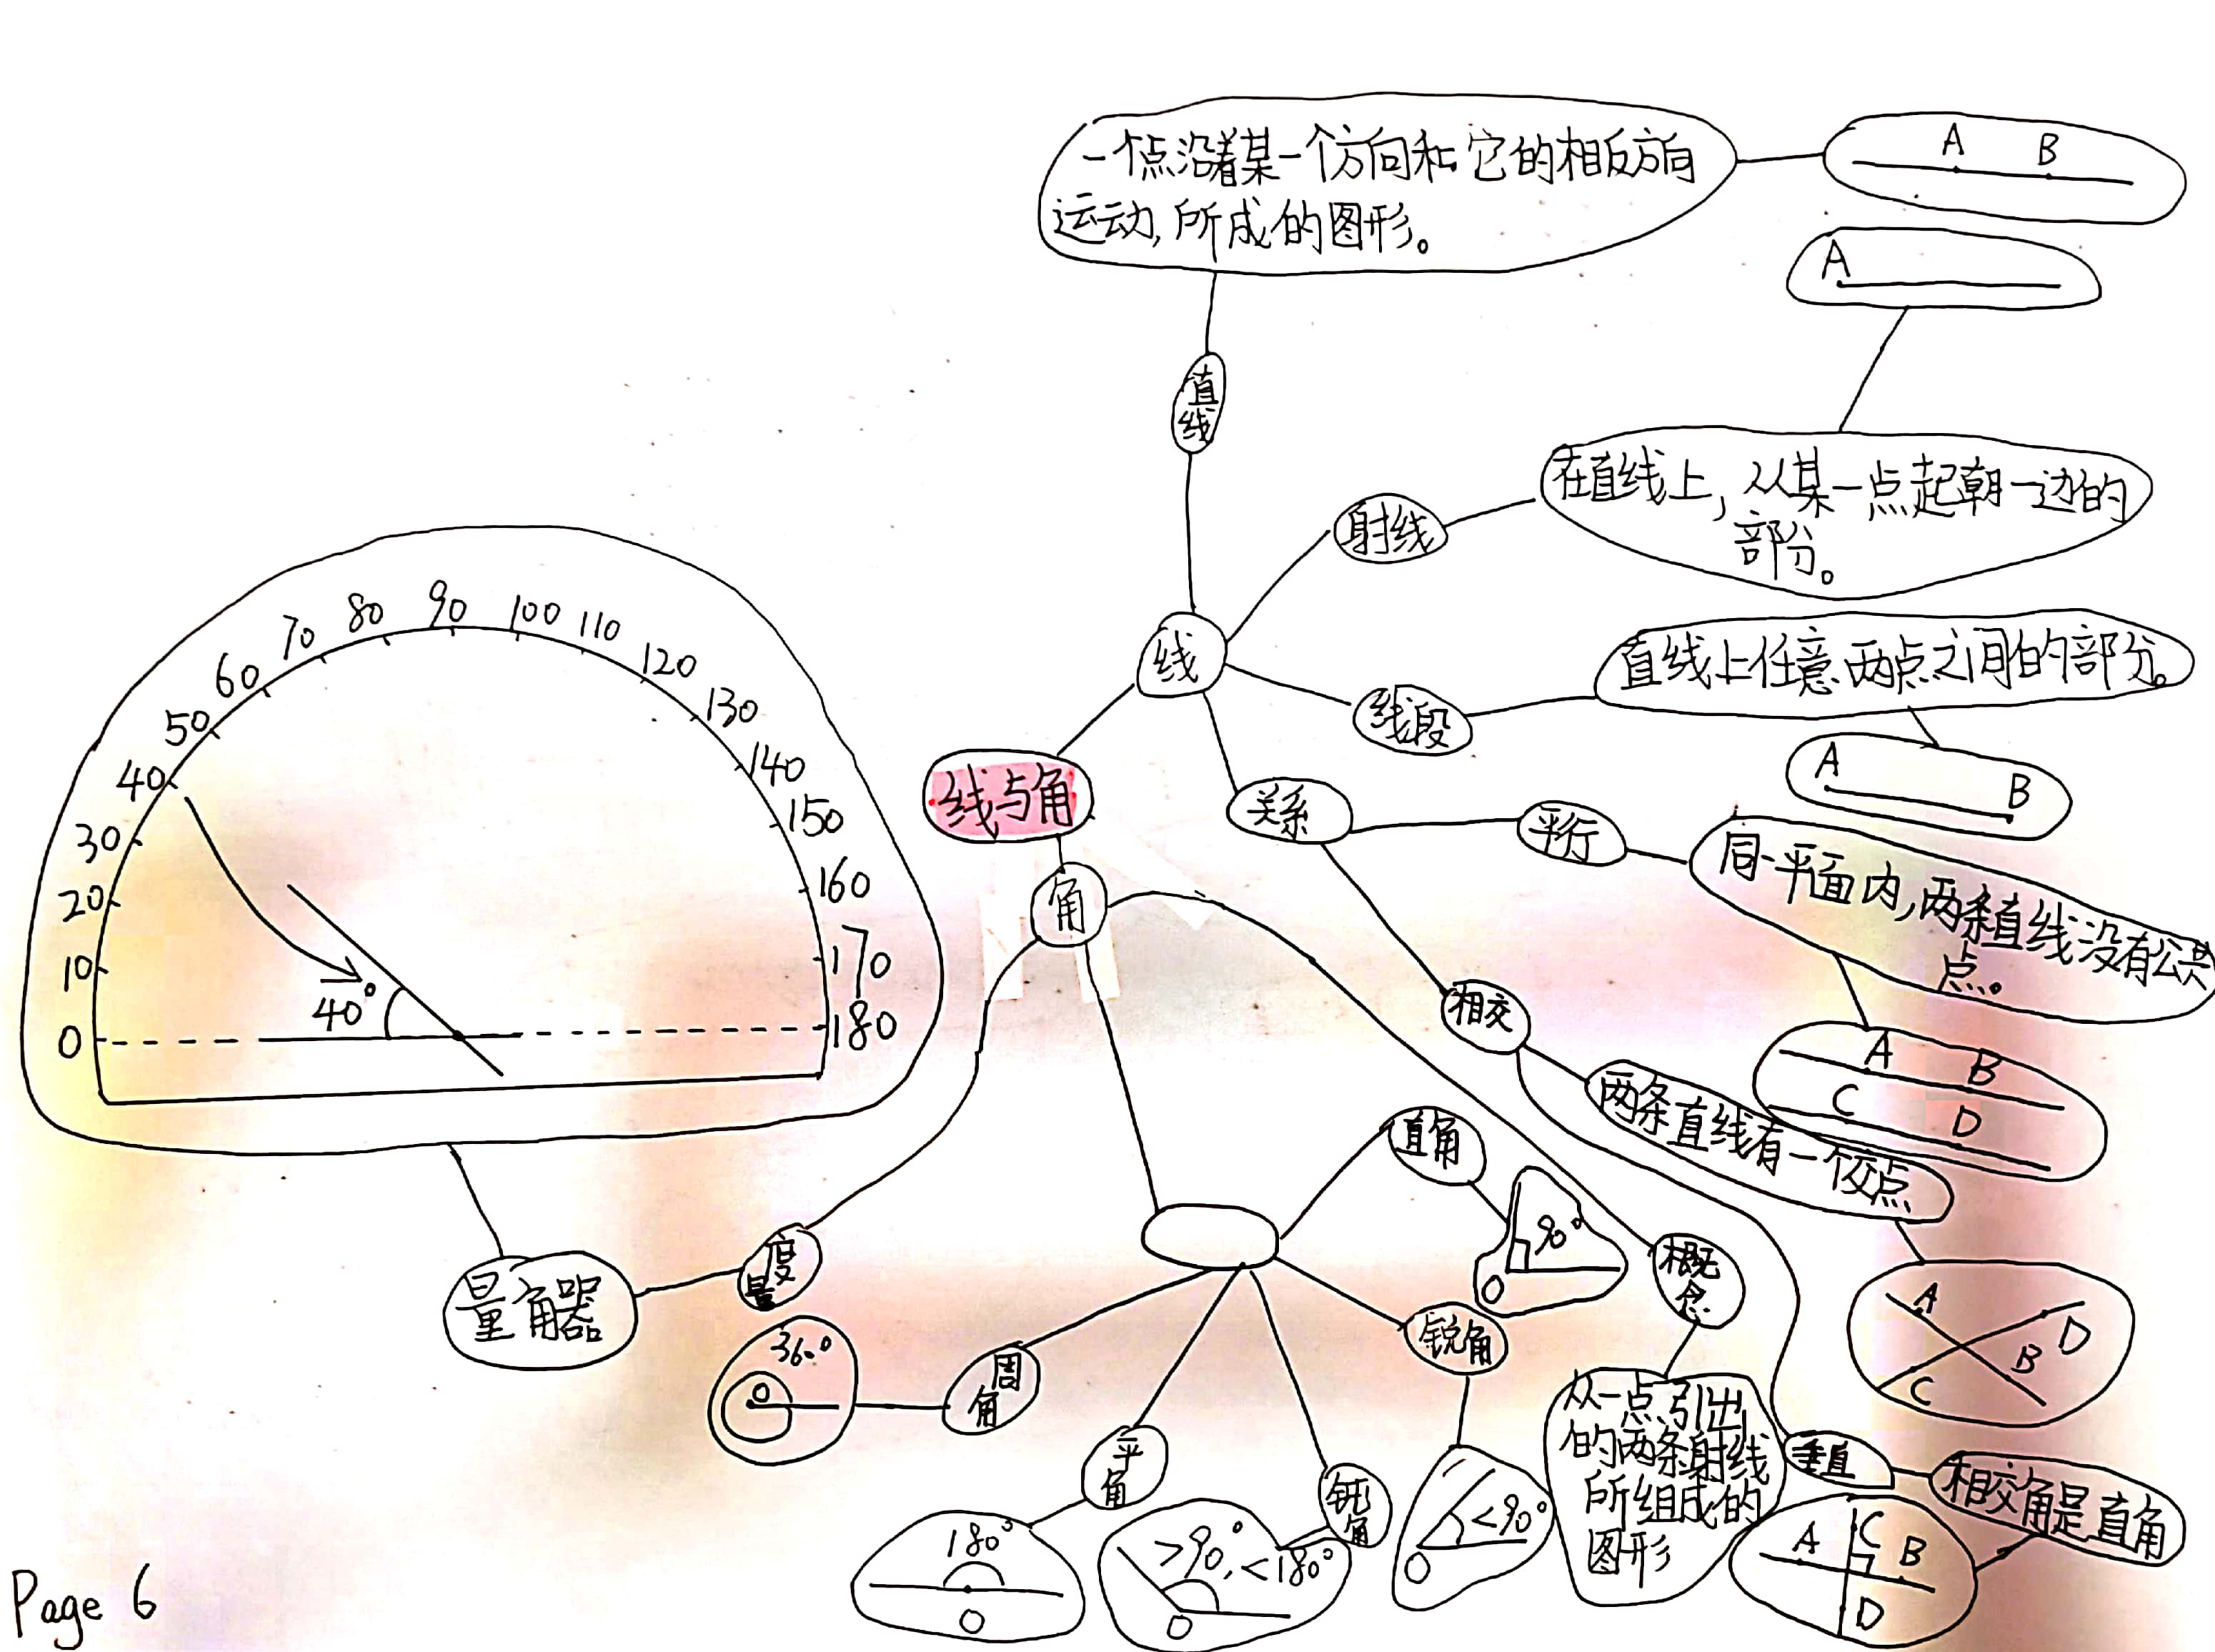 一个点沿着某一个方向和它的相反方向
运动,所成的图形。
A B
A
直
线
射线
在直线上,从某一点起朝一边的
部分。
线
线段
直线上任意两点之间的部分。
A
B
线与角
关系
平行
同一平面内,两条直线没有公共
点。
A B
C D
相交
两条直线有一个交点
A
B
C
D
垂直
相交角是直角
A C B
D
角
概
念
从一点引出
的两条射线
所组成的
图形
直角
90°
O
锐角
<90°
O
钝
角
>90°,<180°
O
平
角
180°
O
周
角
360°
O
度
量
量角器
0
10
20
30
40
50
60
70
80
90
100
110
120
130
140
150
160
170
180
40°
Page 6